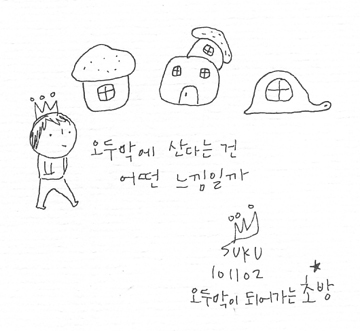 오두막에 산다는 건
어떤 느낌일까
SUKU
101102
오두막이 되어가는 초방